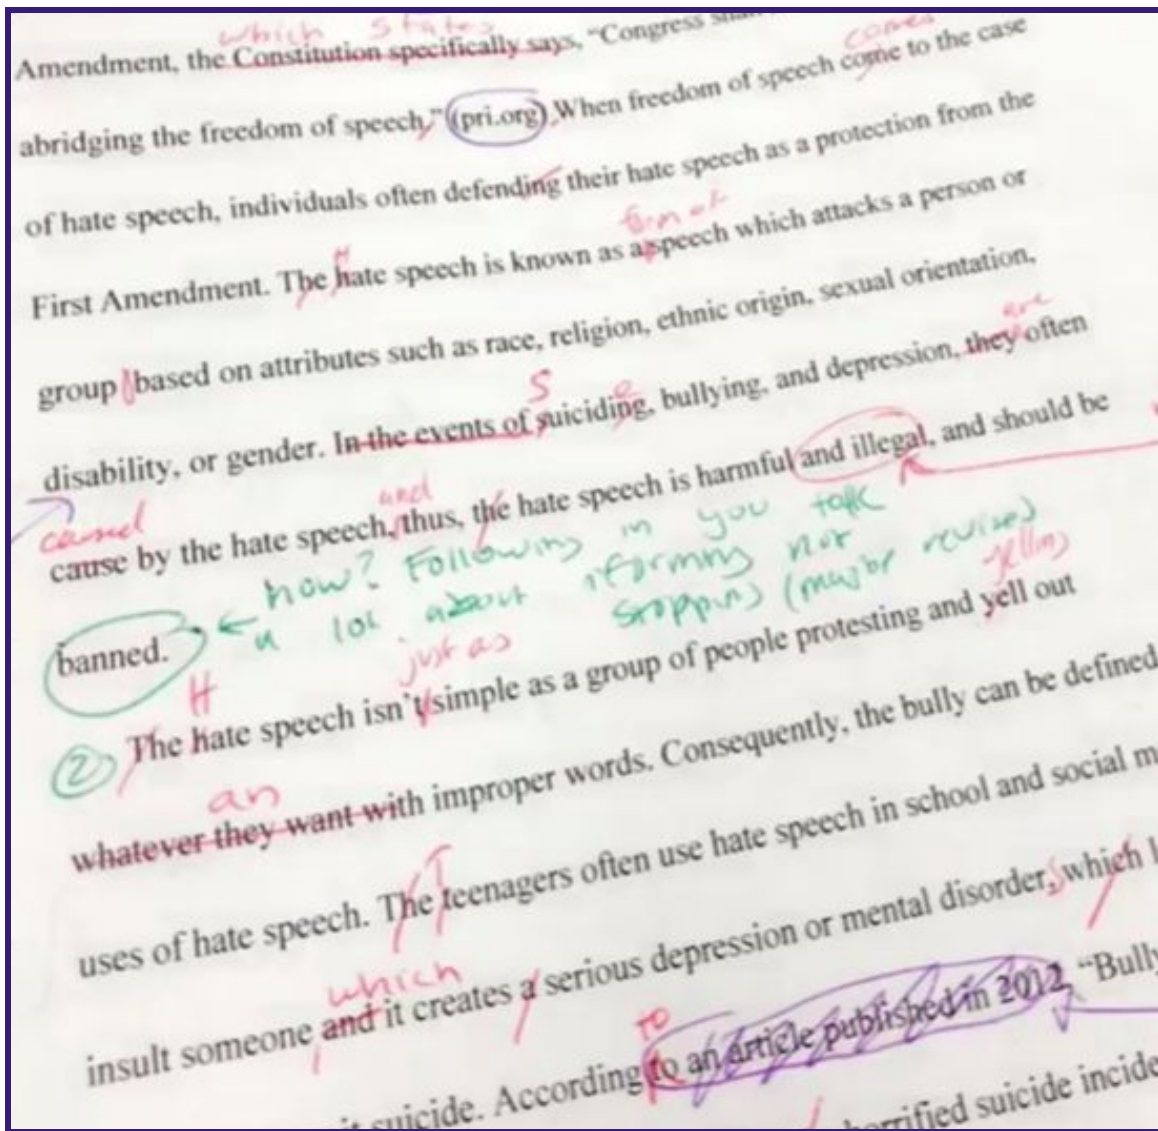 which states
Amendment, the Constitution specifically says, "Congress
comes
abridging the freedom of speech," (pri.org). When freedom of speech come to the case
of hate speech, individuals often defending their hate speech as a protection from the
form of
H
First Amendment. The hate speech is known as a speech which attacks a person or
group based on attributes such as race, religion, ethnic origin, sexual orientation,
are
S e
disability, or gender. In the events of suiciding, bullying, and depression, they often
caused
and
cause by the hate speech, thus, the hate speech is harmful and illegal, and should be
how? Following in you talk
a lot about informing not
stopping (maybe revised)
banned.
yelling
just as
H
② The hate speech isn't simple as a group of people protesting and yell out
an
whatever they want with improper words. Consequently, the bully can be defined
T
uses of hate speech. The teenagers often use hate speech in school and social
s
which
insult someone and it creates a serious depression or mental disorder, which
to
suicide. According to an article published in 2012, "Bully
horrified suicide